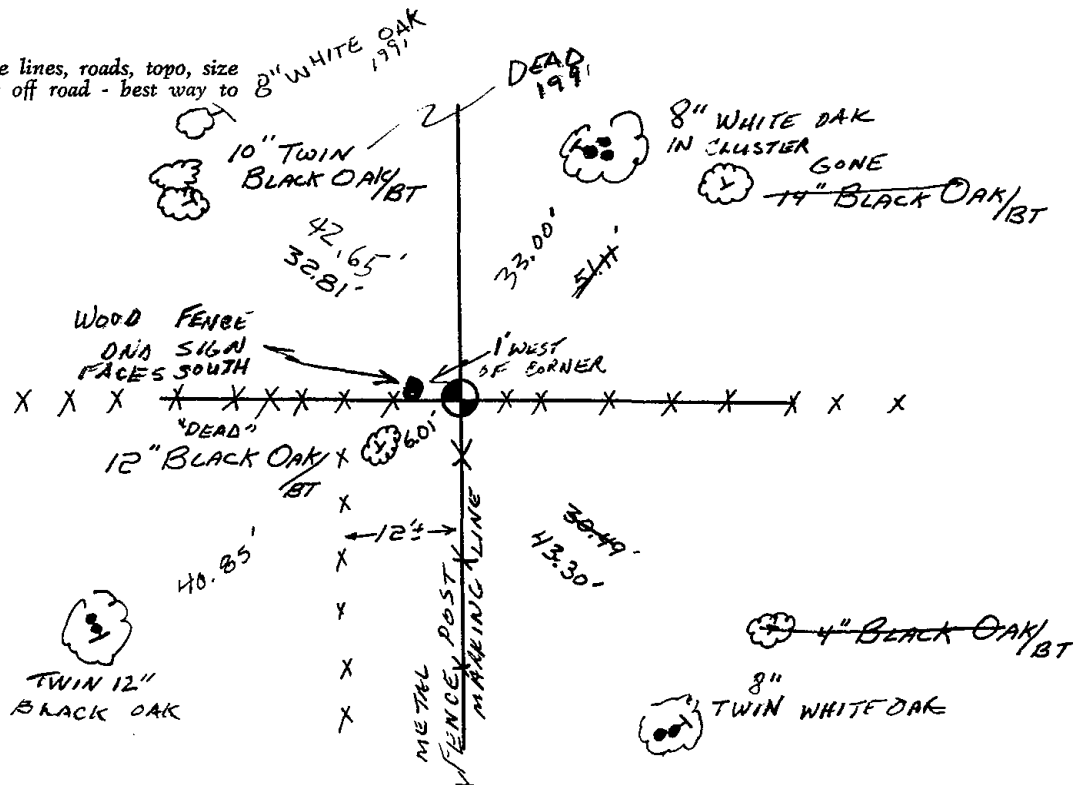 e lines, roads, topo, size
off road - best way to
8" WHITE OAK
1991
DEAD
1991
10" TWIN
BLACK OAK/BT
8" WHITE OAK
IN CLUSTER
GONE
14" BLACK OAK/BT
42.65'
32.81'
33.00'
51.11'
WOOD FENCE
DND SIGN
FACES SOUTH
1' WEST
OF CORNER
X X X X X X X X X X X X X X X X X
"DEAD"
12" BLACK OAK/BT
6.01'
12'±
40.85'
30.49'
43.30'
METAL
FENCE POST
MARKING LINE
4" BLACK OAK/BT
TWIN 12"
BLACK OAK
8"
TWIN WHITE OAK